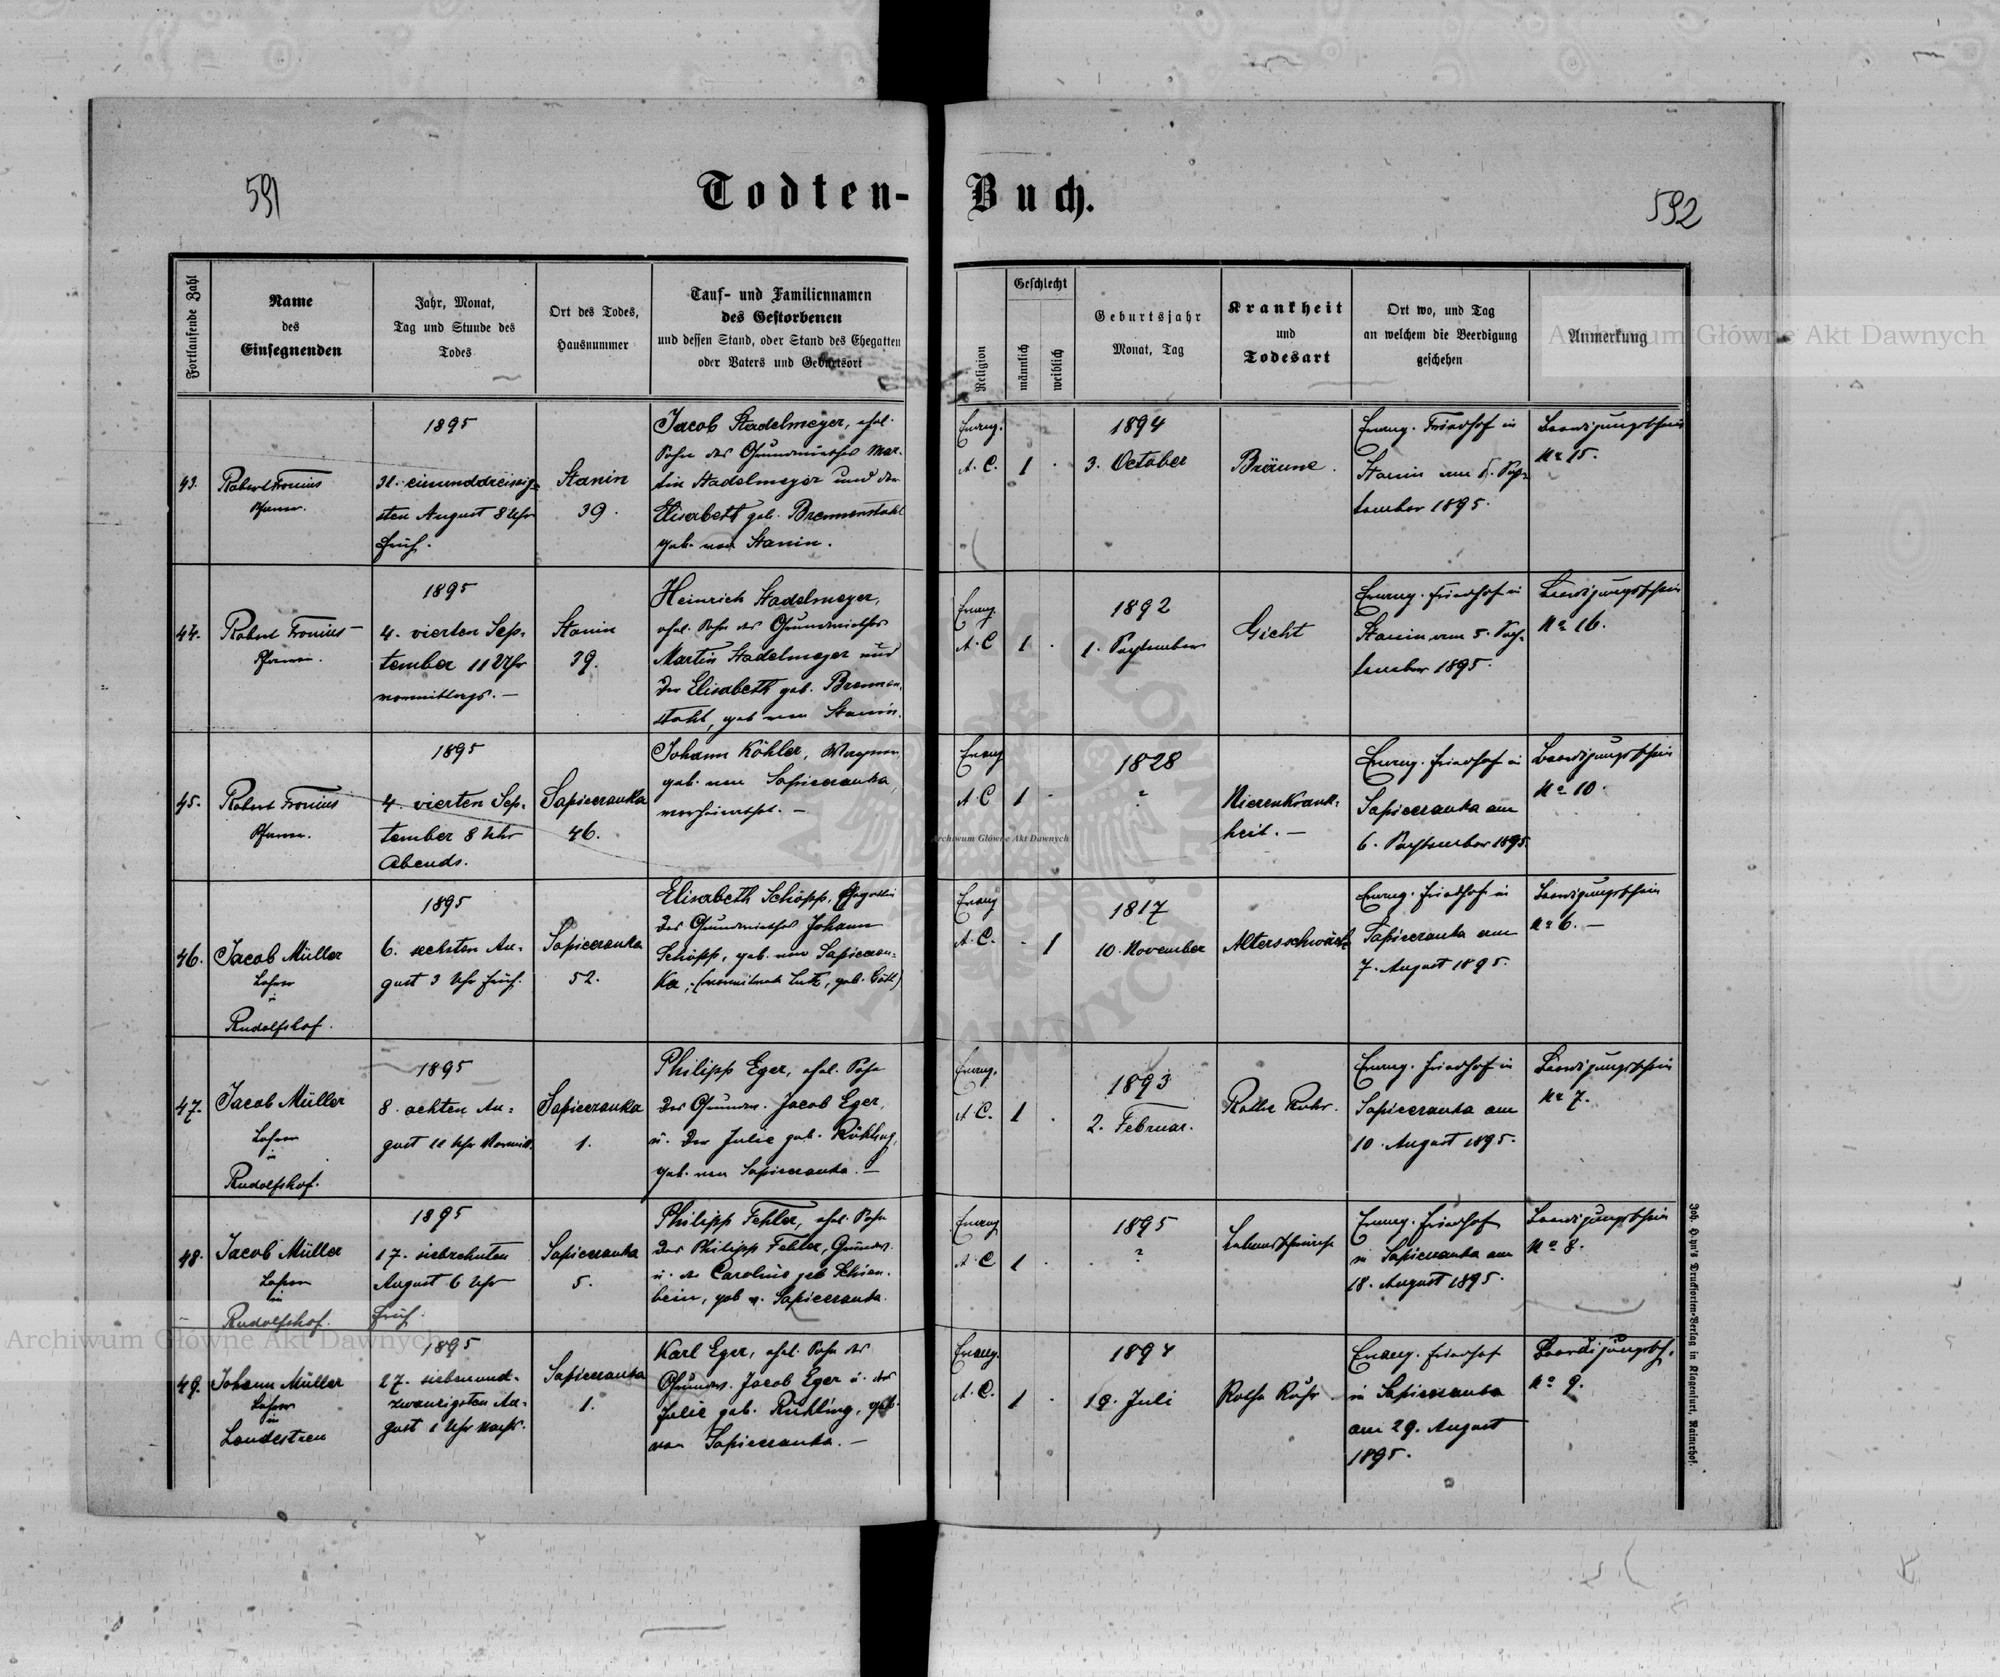 591
Todten-Buch.
592
Fortlaufende Zahl
Name
des
Einsegnenden
Jahr, Monat,
Tag und Stunde des
Todes
Ort des Todes,
Hausnummer
Tauf- und Familiennamen
des Gestorbenen
und dessen Stand, oder Stand des Ehegatten
oder Vaters und Geburtsort
Religion
Geschlecht
männlich
weiblich
Geburtsjahr
Monat, Tag
Krankheit
und
Todesart
Ort wo, und Tag
an welchem die Beerdigung
geschehen
Anmerkung
Archiwum Główne Akt Dawnych
43.
Robert Fronius
Pfarrer.
1895
31. einunddreissig-
sten August 8 Uhr
Früh.
Stanin
39.
Jacob Stadelmeyer, ehel.
Sohn des Grundwirthes Mar-
tin Stadelmeyer und der
Elisabeth geb. Brennenstahl
geb. von Stanin.
Evang.
A. C.
1
1894
3. October
Bräune.
Evang. Friedhof in
Stanin am Sep-
tember 1895.
Beerdigungsschein
No 15.
44.
Robert Fronius
Pfarrer.
1895
4. vierten Sep-
tember 11 Uhr
vormittags. —
Stanin
39.
Heinrich Stadelmeyer,
ehel. Sohn des Grundwirthes
Martin Stadelmeyer und
der Elisabeth geb. Brennen-
stahl, geb. von Stanin.
Evang.
A. C
1
1892
1. September
Gicht
Evang. Friedhof in
Stanin am 5. Sep-
tember 1895.
Beerdigungsschein
No 16.
45.
Robert Fronius
Pfarrer.
1895
4. vierten Sep-
tember 8 Uhr
Abends.
Sapiezanka
46.
Johann Köhler,
geb. von Sapiezanka,
verheirathet. —
Evang
A. C
1
1828
?
Nierenkrank-
heit. —
Evang. Friedhof in
Sapiezanka am
6. September 1895
Beerdigungsschein
No 10.
Archiwum Główne Akt Dawnych
46.
Jacob Müller
Lehrer
in
Rudolfshof.
1895
6. sechsten Au-
gust 3 Uhr früh.
Sapiezanka
52.
Elisabeth Schöpp, Ehegattin
des Grundwirthes Johann
Schöpp, geb. von Sapiezan-
ka,
Evang
A. C.
1
1817
10. November
Altersschwäche
Evang. Friedhof in
Sapiezanka am
7. August 1895.
Beerdigungsschein
No 6. —
47.
Jacob Müller
Lehrer
in
Rudolfshof.
1895
8. achten Au-
gust 11 Uhr Vormitt.
Sapiezanka
1.
Philipp Eger, ehel. Sohn
des Grundw. Jacob Eger,
u. der Julie geb. Rühling,
geb. von Sapiezanka. —
Evang.
A. C.
1
1893
2. Februar.
Rothe Ruhr.
Evang. Friedhof in
Sapiezanka am
10. August 1895.
Beerdigungsschein
No 7.
48.
Jacob Müller
Lehrer
in
Rudolfshof.
1895
17. siebzehnten
August 6 Uhr
Früh.
Sapiezanka
5.
Philipp Fehler, ehel. Sohn
des Philipp Fehler, Grundw.
u. der Caroline geb. Schien-
bein, geb. v. Sapiezanka.
Evang
A. C
1
1895
?
Lebensschwäche
Evang. Friedhof
in Sapiezanka am
18. August 1895.
Beerdigungsschein
No 8.
49.
Johann Müller
Lehrer
in
Landestreu
1895
27. siebenund-
zwanzigsten Au-
gust 1 Uhr nachts.
Sapiezanka
1.
Karl Eger, ehel. Sohn des
Grundw. Jacob Eger u. der
Julie geb. Rühling, geb.
von Sapiezanka. —
Evang.
A. C.
1
1894
19. Juli
Rothe Ruhr.
Evang. Friedhof
in Sapiezanka
am 29. August
1895.
Beerdigungssch.
No 9.
Archiwum Główne Akt Dawnych
Druckforten-Verlag in Klagenfurt, Rainerhof.